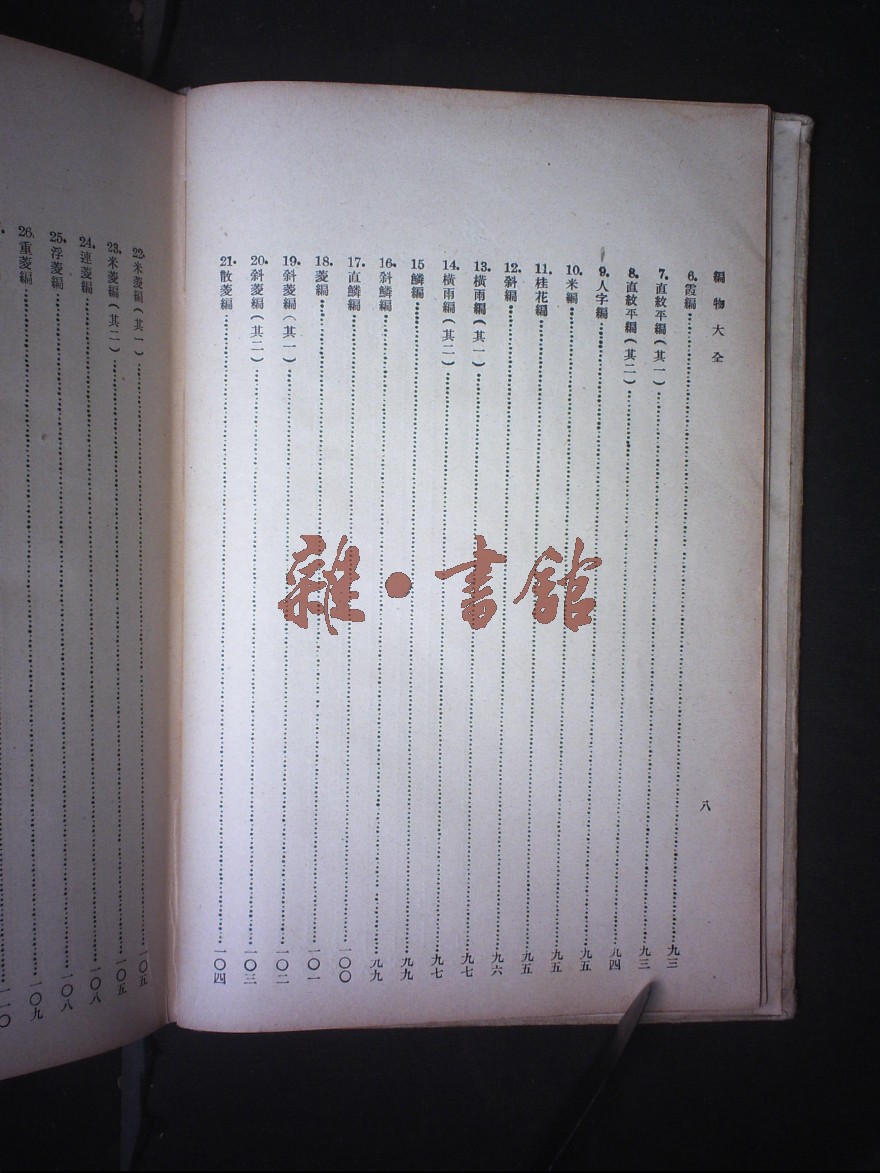 編物大全
八
6.霞編 九三
7.直紋平編(其一) 九三
8.直紋平編(其二) 九四
9.人字編 九五
10.米編 九五
11.桂花編 九五
12.斜編 九六
13.橫雨編(其一) 九七
14.橫雨編(其二) 九七
15鱗編 九九
16.斜鱗編 九九
17.直鱗編 一〇〇
18.菱編 一〇一
19.斜菱編(其一) 一〇二
20.斜菱編(其二) 一〇三
21.散菱編 一〇四
22.米菱編(其一) 一〇五
23.米菱編(其二) 一〇五
24.連菱編 一〇八
25.浮菱編 一〇八
26.重菱編 一〇九
一一〇
雜·書館